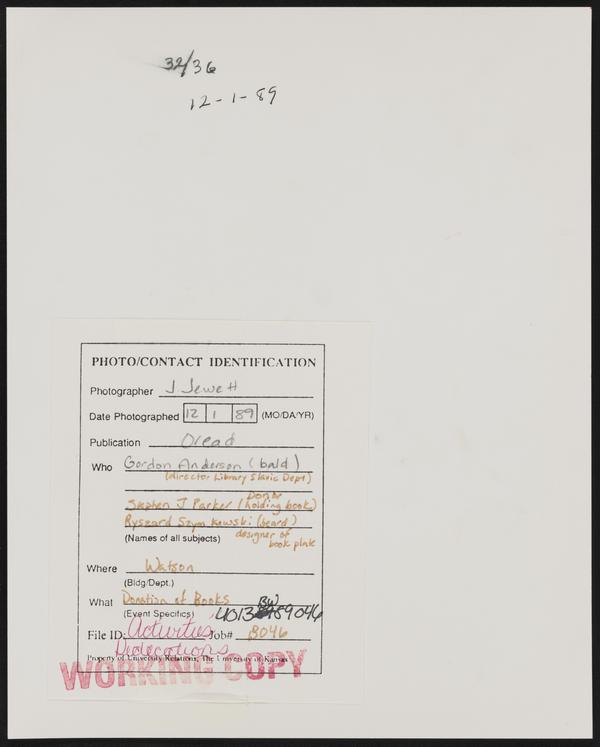 32/36
12-1-89
PHOTO/CONTACT IDENTIFICATION
Photographer J Jewett
Date Photographed 12 1 89 (MO/DA/YR)
Publication Oread
Who Gordon Anderson (bald)
(director Library Slavic Dept)
Donor
Stephen J Parker (holding book)
Ryszard Szymkowski (beard)
(Names of all subjects) designer of
book plate
Where Watson
(Bldg/Dept.)
What Donation of Books
BW
(Event Specifics)
File ID: Activities Job# B046
Dedications
Property of University Relations, The University of Kansas
WORKING COPY